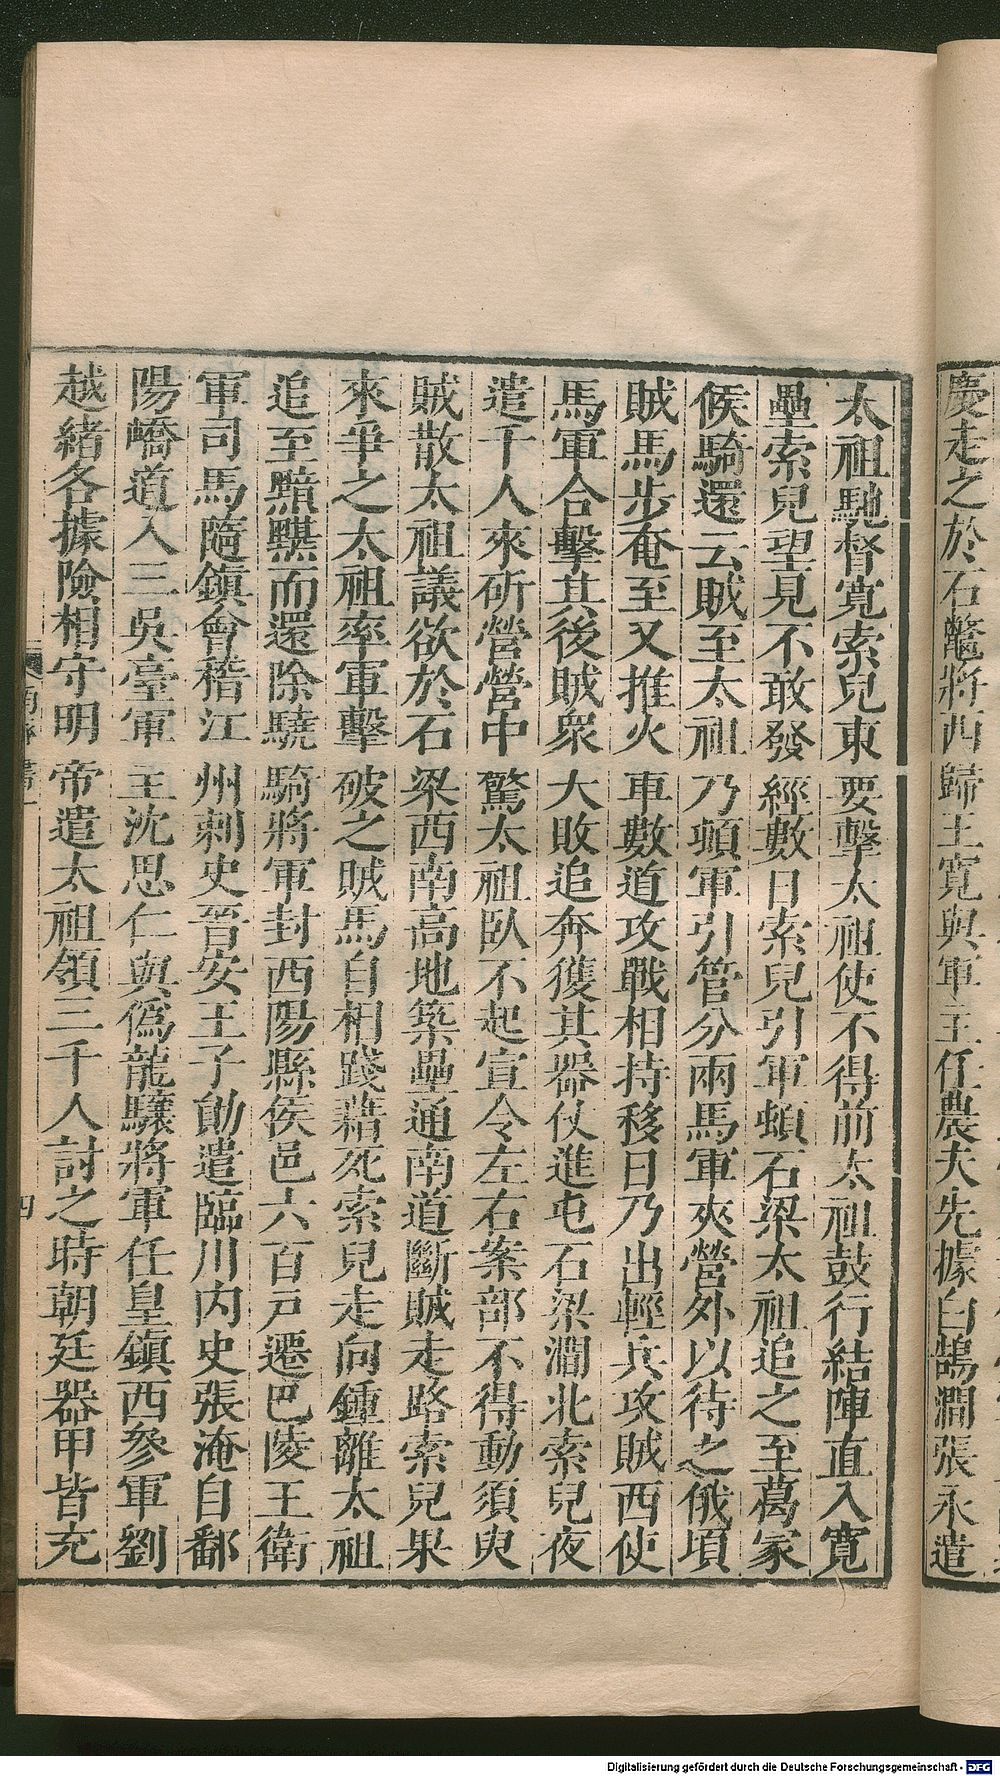 慶走之於石鼈將西歸王寬與軍主任農夫先據白鵠澗張永遣
太祖馳督寬索兒東要擊太祖使不得前太祖鼓行結陣直入寬
壘索兒望見不敢發經數日索兒引軍頓石梁太祖追之至葛冢
候騎還云賊至太祖乃頓軍引管分兩馬軍夾營外以待之俄頃
賊馬步奄至又推火車數道攻戰相持移日乃出輕兵攻賊西使
馬軍合擊其後賊衆大敗追奔獲其器仗進屯石梁澗北索兒夜
遣千人來斫營營中驚太祖臥不起宣令左右案部不得動須臾
賊散太祖議欲於石梁西南高地築壘通南道斷賊走路索兒果
來爭之太祖率軍擊破之賊馬自相踐藉死索兒走向鍾離太祖
追至黯黮而還除驍騎將軍封西陽縣侯邑六百戸遷巴陵王衛
軍司馬隨鎮會稽江州刺史晉安王子勛遣臨川內史張淹自鄱
陽嶠道入三吳臺軍主沈思仁與僞龍驤將軍任皇鎮西參軍劉
越緒各據險相守明帝遣太祖領三千人討之時朝廷器甲皆充
四
Digitalisierung gefördert durch die Deutsche Forschungsgemeinschaft - DFG